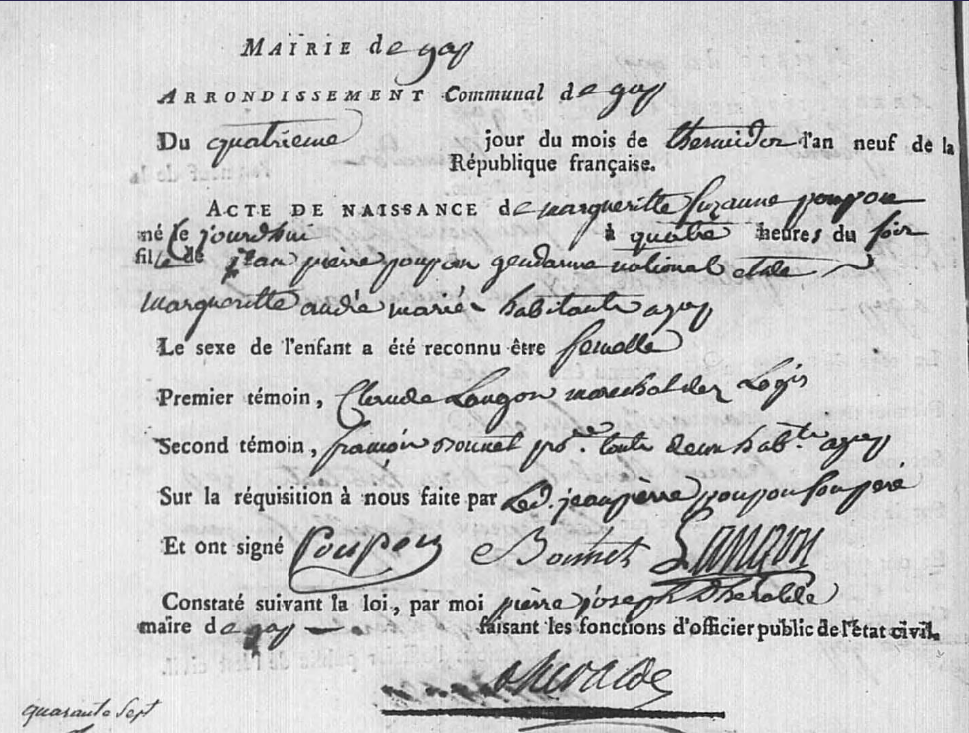 MAIRIE de gap
ARRONDISSEMENT Communal de gap
Du quatrieme jour du mois de thermidor l'an neuf de la
République française.
ACTE DE NAISSANCE de margueritte suzanne poupon
né le jourdhui à quatre heures du soir
fille de jean pierre poupon gendarme national et de
Margueritte andré mariés habitants a gap
Le sexe de l'enfant a été reconnu être femelle
Premier témoin, Claude Langon marechal dez Logis
Second témoin, françois bonnet pre. toute deux habts. a gap
Sur la réquisition à nous faite par Led. jean pierre poupon son peré
Et ont signé Poupon Bonnet Langon
Constaté suivant la loi, par moi pierre joseph
maire de gap faisant les fonctions d'officier public de l'état civil.
quarante sept